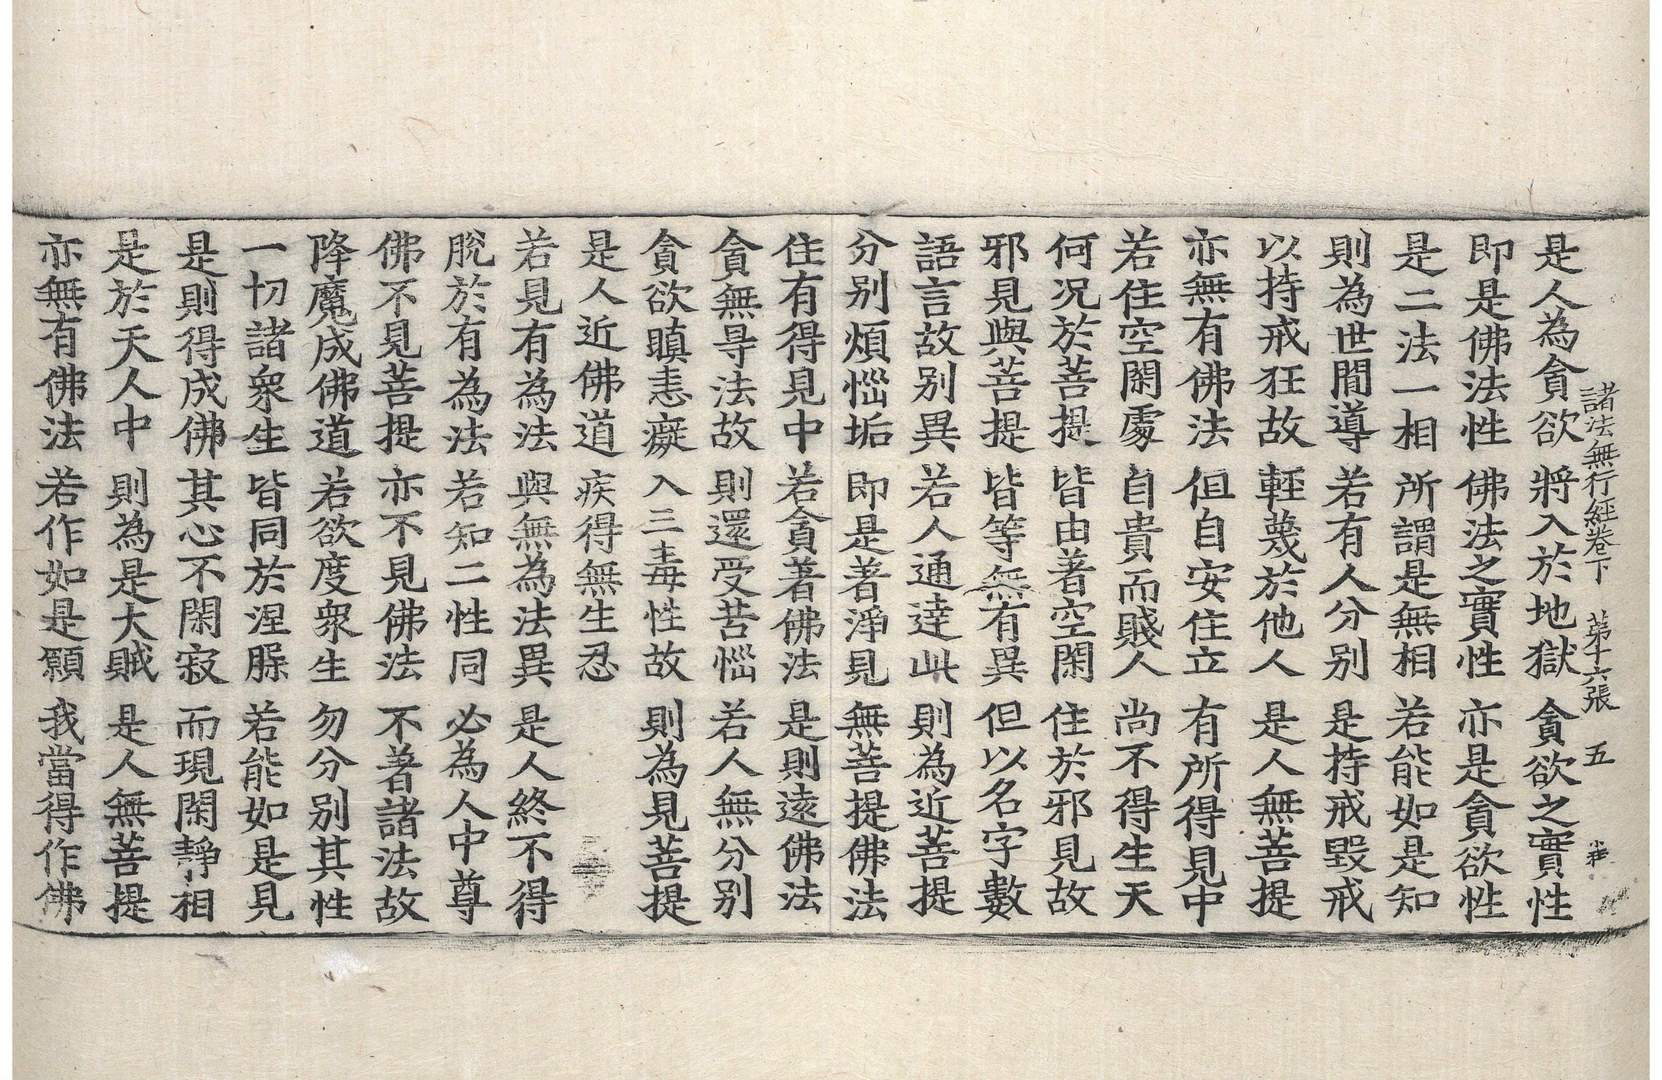 諸法無行經卷下 第十六張 五
是人為貪欲 將入於地獄 貪欲之實性
即是佛法性 佛法之實性 亦是貪欲性
是二法一相 所謂是無相 若能如是知
則為世間導 若有人分別 是持戒毀戒
以持戒狂故 輕蔑於他人 是人無菩提
亦無有佛法 但自安住立 有所得見中
若住空閑處 自貴而賤人 尚不得生天
何况於菩提 皆由著空閑 住於邪見故
邪見與菩提 皆等無有異 但以名字數
語言故别異 若人通達此 則為近菩提
分别煩惱垢 即是著淨見 無菩提佛法
住有得見中 若貪著佛法 是則遠佛法
貪無㝵法故 則還受苦惱 若人無分别
貪欲瞋恚癡 入三毒性故 則為見菩提
是人近佛道 疾得無生忍
若見有為法 與無為法異 是人終不得
脫於有為法 若知二性同 必為人中尊
佛不見菩提 亦不見佛法 不著諸法故
降魔成佛道 若欲度衆生 勿分别其性
一切諸衆生 皆同於涅槃 若能如是見
是則得成佛 其心不閑寂 而現閑靜相
是於天人中 則為是大賊 是人無菩提
亦無有佛法 若作如是願 我當得作佛